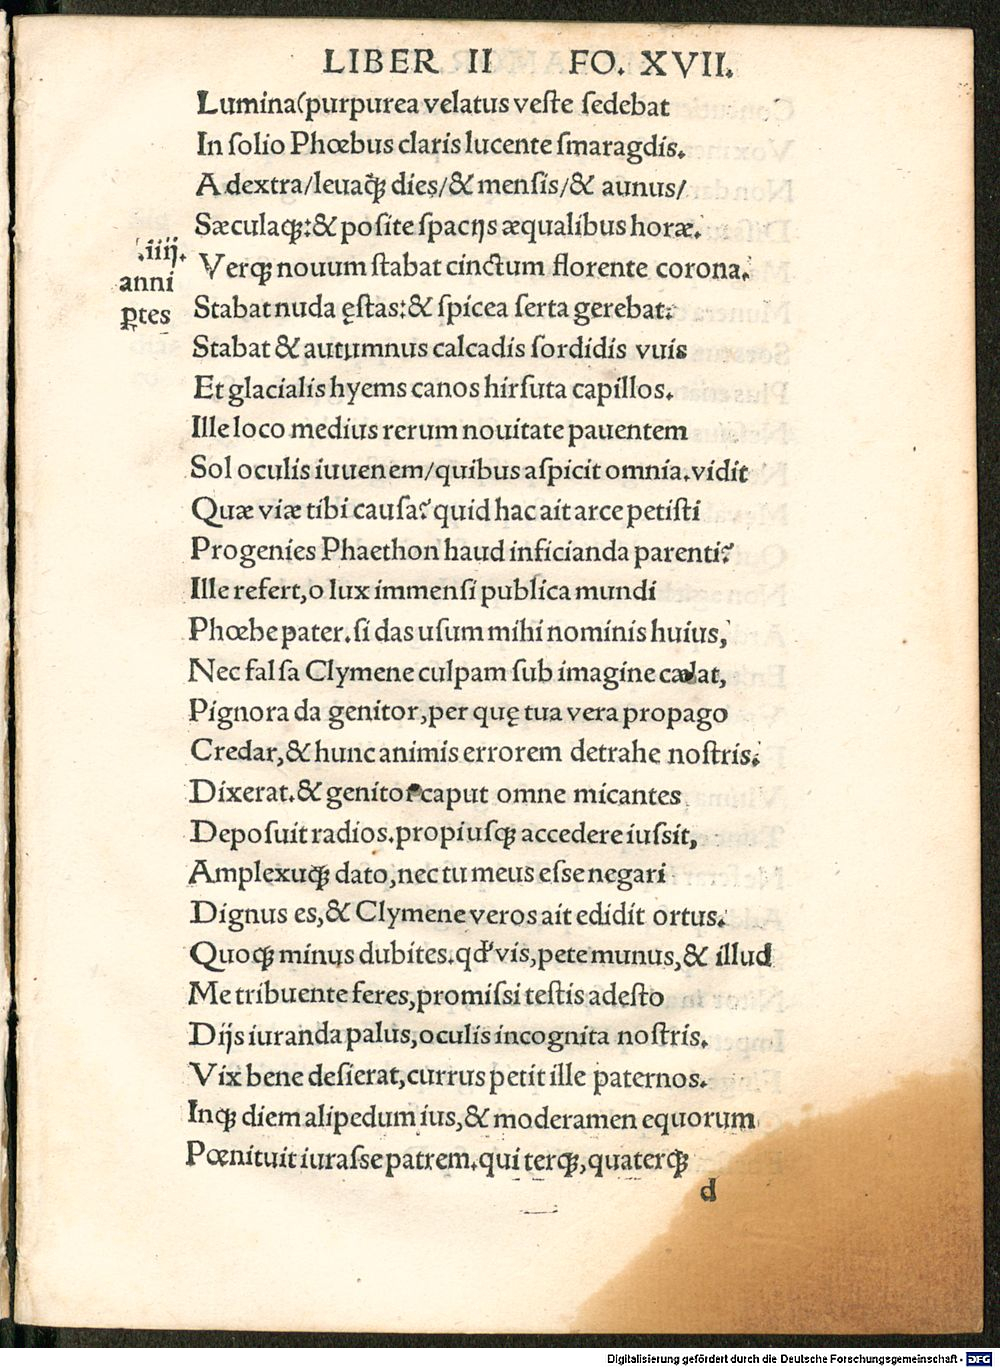 LIBER II FO. XVII.
Lumina(purpurea velatus veſte ſedebat
In ſolio Phœbus claris lucente ſmaragdis.
A dextra/leuaqꝫ dies/& menſis/& aunus/
Sæculaqꝫ:& poſite ſpacijs æqualibus horæ.
.iiij.
anni
ꝑtes
Verqꝫ nouum ſtabat cinctum florente corona.
Stabat nuda ęſtas:& ſpicea ſerta gerebat:
Stabat & autumnus calcadis ſordidis vuis
Et glacialis hyems canos hirſuta capillos.
Ille loco medius rerum nouitate pauentem
Sol oculis iuuenem/quibus aſpicit omnia.vidit
Quæ viæ tibi cauſa? quid hac ait arce petiſti
Progenies Phaethon haud inficianda parenti?
Ille refert,o lux immenſi publica mundi
Phœbe pater.ſi das uſum mihi nominis huius,
Nec falſa Clymene culpam ſub imagine cælat,
Pignora da genitor,per quę tua vera propago
Credar,& hunc animis errorem detrahe noſtris.
Dixerat.& genitor caput omne micantes
Depoſuit radios.propiuſqꝫ accedere iuſſit,
Amplexuqꝫ dato,nec tu meus eſſe negari
Dignus es,& Clymene veros ait edidit ortus.
Quoqꝫ minus dubites.qđ vis,pete munus,& illud
Me tribuente feres,promiſſi teſtis adeſto
Dijs iuranda palus,oculis incognita noſtris.
Vix bene deſierat,currus petit ille paternos.
Inqꝫ diem alipedum ius,& moderamen equorum
Pœnituit iuraſſe patrem.qui terqꝫ,quaterqꝫ
d
Digitalisierung gefördert durch die Deutsche Forschungsgemeinschaft - DFG